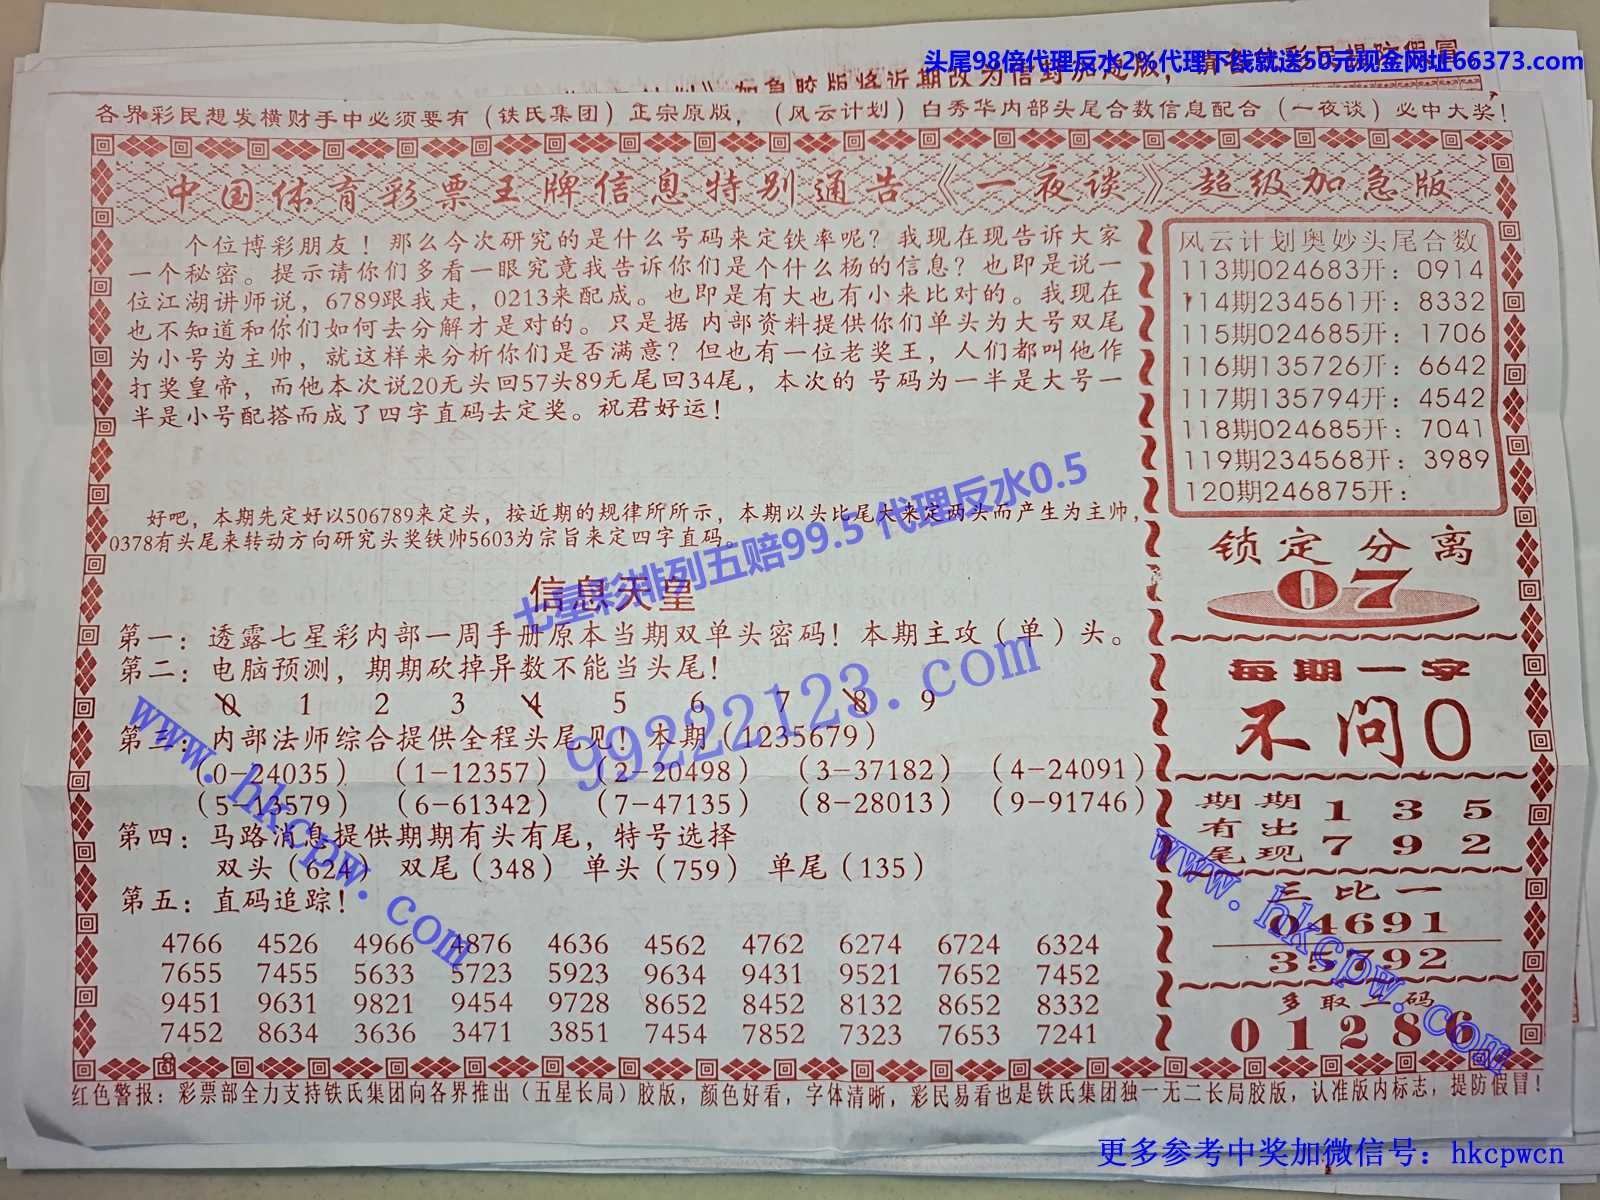 头尾98倍代理反水2%代理下线就送50元现金网址66373.com
各界彩民想发横财手中必须要有（铁氏集团）正宗原版，（风云计划）白秀华内部头尾合数信息配合（一夜谈）必中大奖！
中国体育彩票王牌信息特别通告《一夜谈》超级加急版
个位博彩朋友！那么今次研究的是什么号码来定铁率呢？我现在现告诉大家
一个秘密。提示请你们多看一眼究竟我告诉你们是个什么杨的信息？也即是说一
位江湖讲师说，6789跟我走，0213来配成。也即是有大也有小来比对的。我现在
也不知道和你们如何去分解才是对的。只是据 内部资料提供你们单头为大号双尾
为小号为主帅，就这样来分析你们是否满意？但也有一位老奖王，人们都叫他作
打奖皇帝，而他本次说20无头回57头89无尾回34尾，本次的 号码为一半是大号一
半是小号配搭而成了四字直码去定奖。祝君好运！
好吧，本期先定好以506789来定头，按近期的规律所所示，本期以头比尾大来定两头而产生为主帅，
0378有头尾来转动方向研究头奖铁帅5603为宗旨来定四字直码。
七星彩排列五赔99.5 代理反水0.5
信息天皇
第一：透露七星彩内部一周手册原本当期双单头密码！本期主攻（单）头。
第二：电脑预测，期期砍掉异数不能当头尾！
0 1 2 3 4 5 6 7 8 9
99222123.com
第三：内部法师综合提供全程头尾见！本期（1235679）
（0-24035）（1-12357）（2-20498）（3-37182）（4-24091）
（5-13579）（6-61342）（7-47135）（8-28013）（9-91746）
第四：马路消息提供期期有头有尾，特号选择
双头（624） 双尾（348） 单头（759） 单尾（135）
第五：直码追踪！
www.hkcpw.com
4766 4526 4966 4876 4636 4562 4762 6274 6724 6324
7655 7455 5633 5723 5923 9634 9431 9521 7652 7452
9451 9631 9821 9454 9728 8652 8452 8132 8652 8332
7452 8634 3636 3471 3851 7454 7852 7323 7653 7241
风云计划奥妙头尾合数
113期024683开：0914
114期234561开：8332
115期024685开：1706
116期135726开：6642
117期135794开：4542
118期024685开：7041
119期234568开：3989
120期246875开：
锁定分离
07
每期一字
不问0
期期 1 3 5
有出
尾现 7 9 2
www.hkcpw.com
三比一
04691
35792
多取二码
01286
红色警报：彩票部全力支持铁氏集团向各界推出（五星长局）胶版，颜色好看，字体清晰，彩民易看也是铁氏集团独一无二长局胶版，认准版内标志，提防假冒！
更多参考中奖加微信号：hkcpwcn